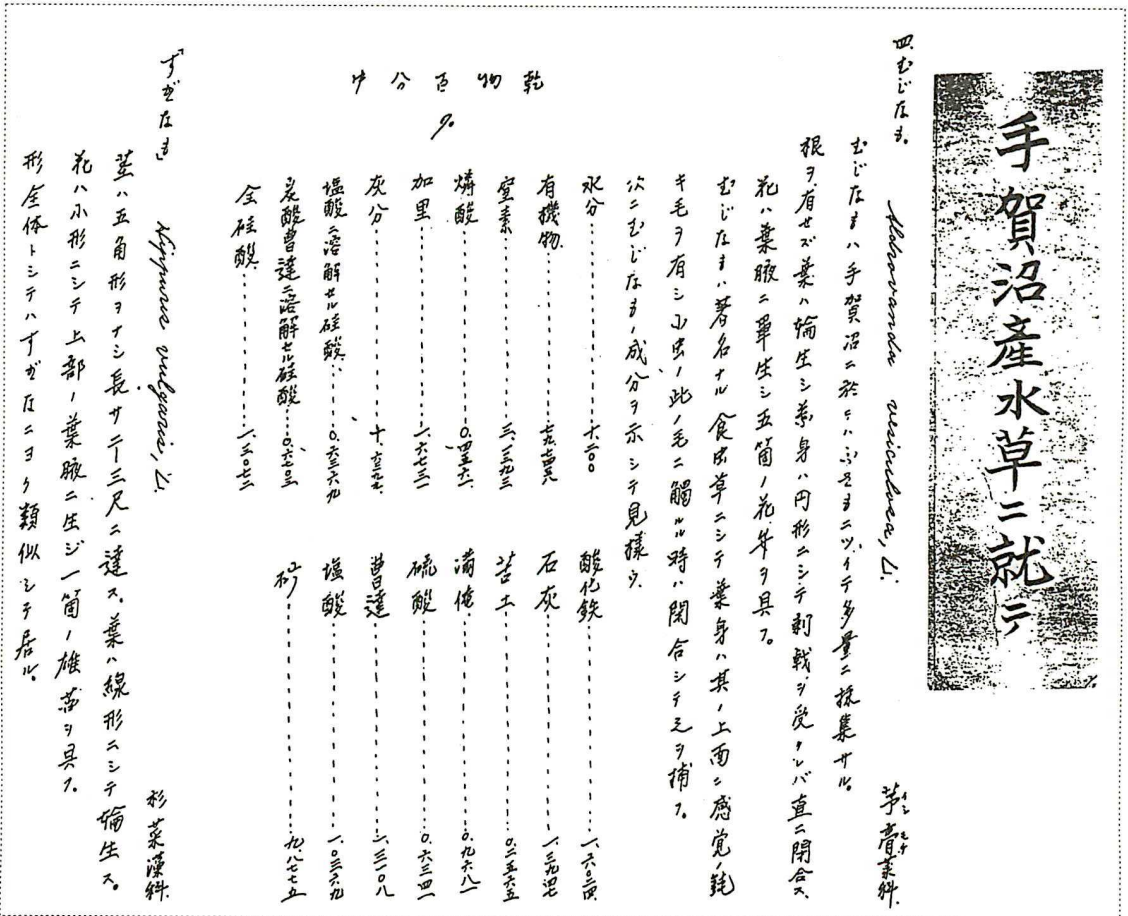 手賀沼産水草ニ就テ
四、むじなも。 Aldrovanda vesiculosa, L. 茅膏菜科
むじなもハ手賀沼ニ於テハふさもニツイテ多量ニ採集サル。
根ヲ有セズ葉ハ輪生シ葉身ハ円形ニシテ刺戟ヲ受クレバ直ニ閉合ス、
花ハ葉腋ニ單生シ五箇ノ花弁ヲ具フ。
むじなもハ著名ナル食虫草ニシテ葉身ハ其ノ上面ニ感覚ノ鋭
キ毛ヲ有シ小虫ノ此ノ毛ニ觸ルル時ハ閉合シテ之ヲ捕フ。
次ニむじなもノ成分ヲ示シテ見様ウ。
乾物百分中 %
水分 十.二〇〇
有機物
窒素 三.三九三
燐酸
加里 一.六七三一
灰分
塩酸ニ溶解セル硅酸 〇.六三六九
炭酸曹達ニ溶解セル硅酸 〇.六七〇三
全硅酸 一.三〇七二
酸化鉄 一.六〇二四
石灰
苦土 〇.二五六五
満俺 〇.九六八一
硫酸 〇.六三四一
曹達 一.三一〇八
塩酸 一.〇三六九
砂 九.八七七五
「すぎなも」 Hippuris vulgaris, L. 杉菜藻科
茎ハ五角形ヲナシ長サ二ー三尺ニ達ス、葉ハ線形ニシテ輪生ス。
花ハ小形ニシテ上部ノ葉腋ニ生ジ一箇ノ雄蕊ヲ具フ。
形全体トシテハすぎなニヨク類似シテ居ル。